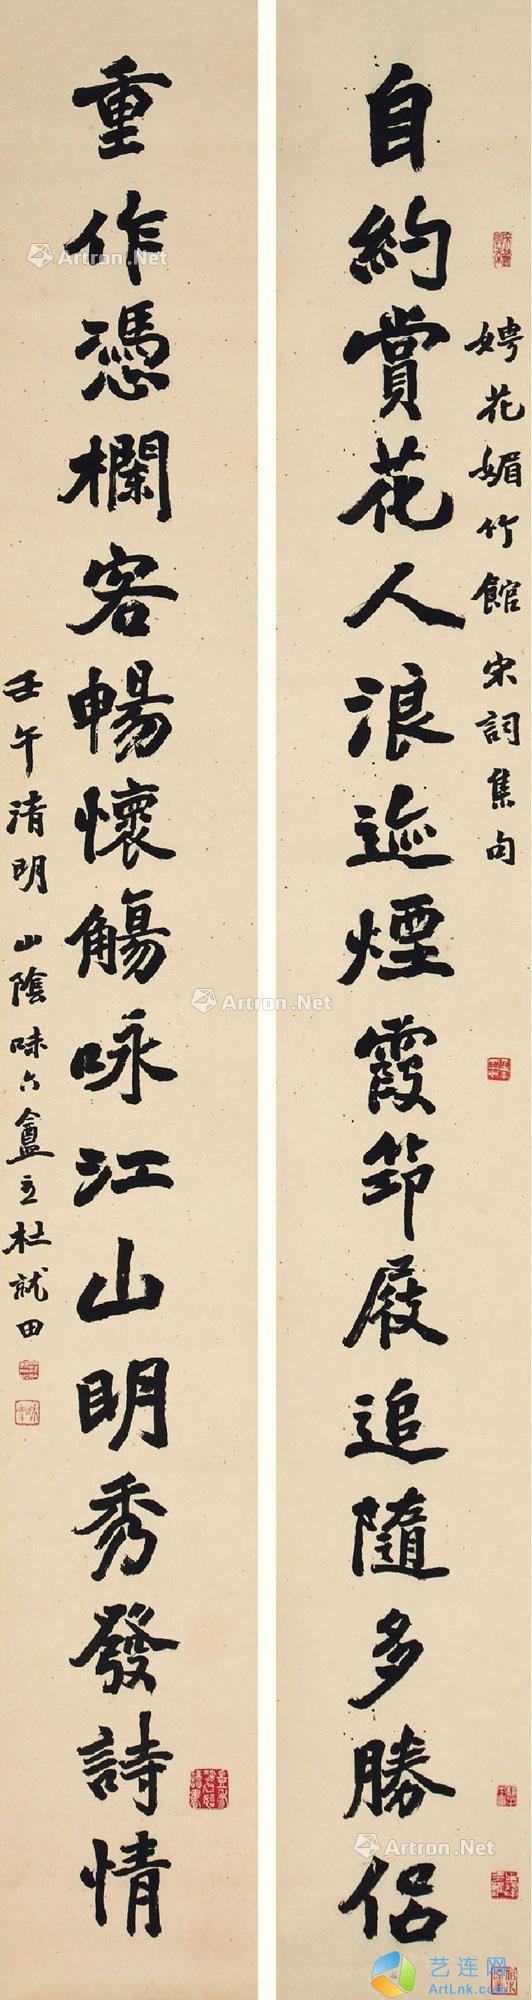 自約賞花人浪迹煙霞笻屐追隨多勝侣
娉花媚竹館宋詞集句
重作憑欄客暢懷觴咏江山明秀發詩情
壬午清明山陰味六盦主杜就田
Artron.Net
Artron.Net
Artron.Net
Artron.Net
艺连网
ArtLnk.com